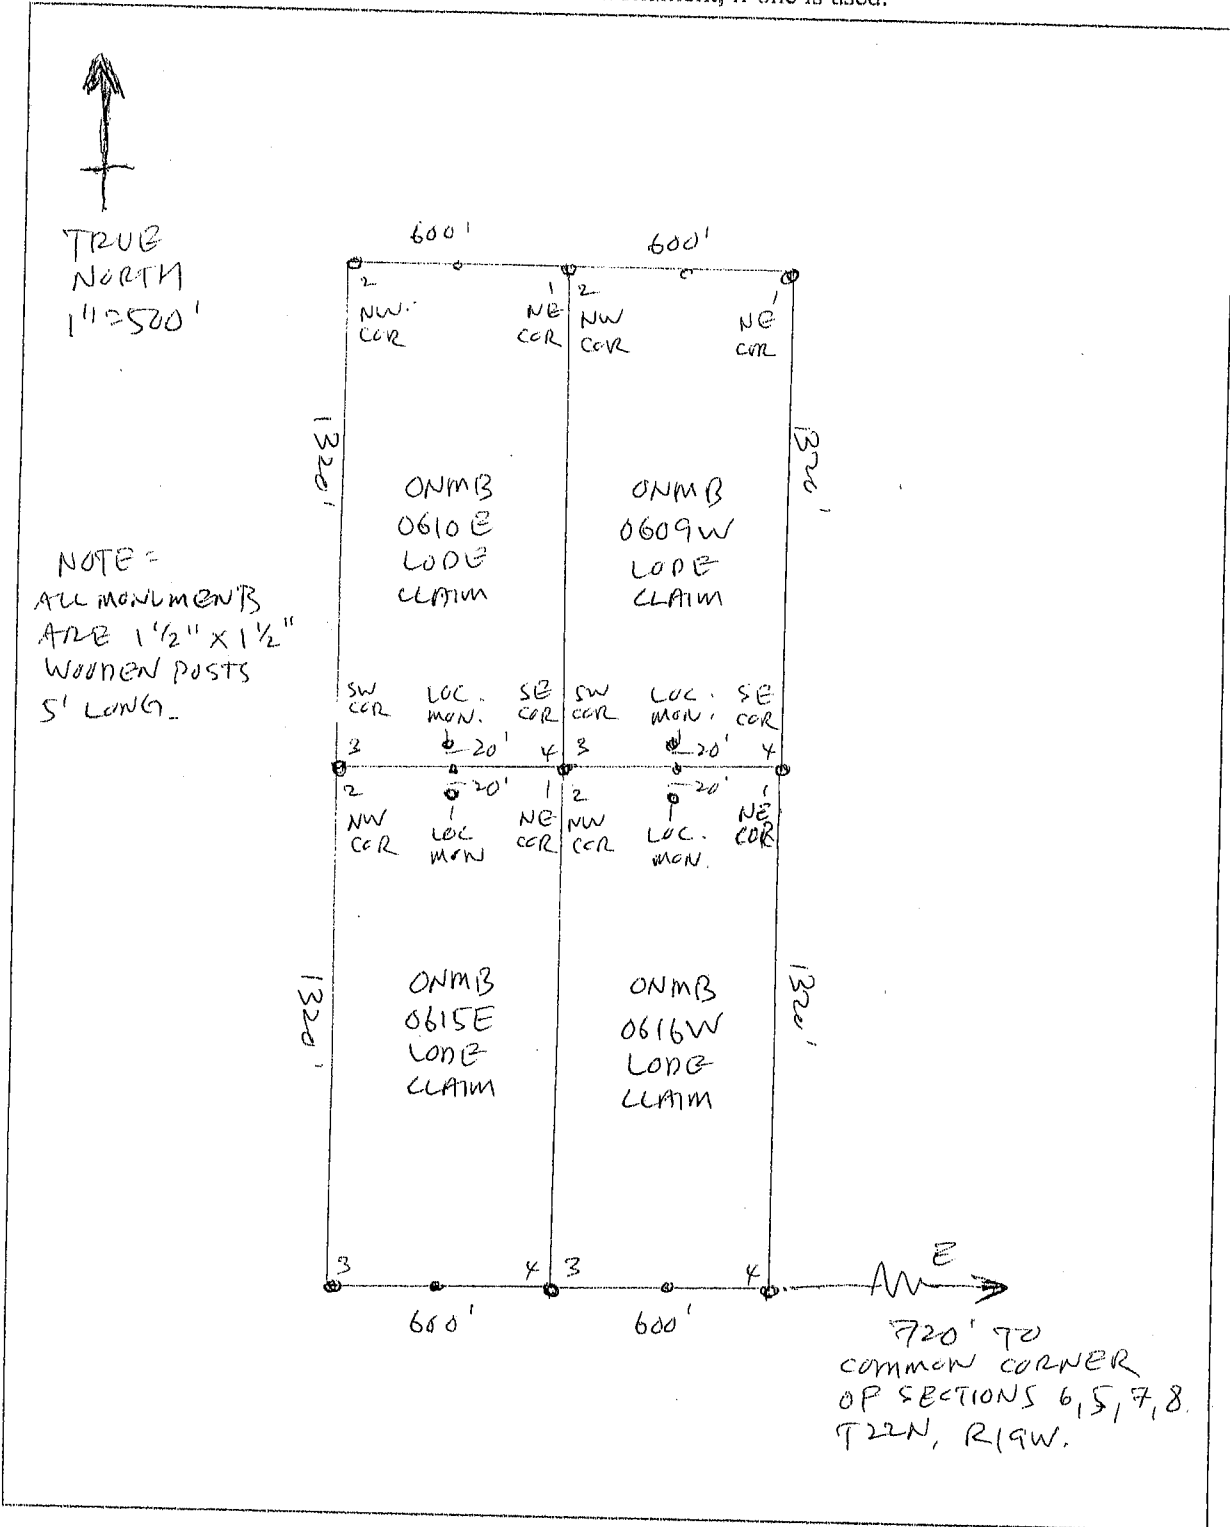 if one is used.
TRUE
NORTH
1"=500'
600'
600'
2
1
2
1
NW.
COR
NE
COR
NW
COR
NE
COR
1320'
1320'
ONMB
0610E
LODE
CLAIM
ONMB
0609W
LODE
CLAIM
NOTE=
ALL MONUMENTS
ARE 1 1/2" X 1 1/2"
WOODEN POSTS
5' LONG.
SW
COR
LOC.
MON.
SE
COR
SW
COR
LOC.
MON.
SE
COR
3
20'
4
3
20'
4
2
20'
1
2
20'
1
NW
COR
LOC
MON
NE
COR
NW
COR
LOC.
MON.
NE
COR
1320'
1320'
ONMB
0615E
LODE
CLAIM
ONMB
0616W
LODE
CLAIM
3
4
3
4
E
600'
600'
720' TO
COMMON CORNER
OF SECTIONS 6,5,7,8.
T22N, R19W.